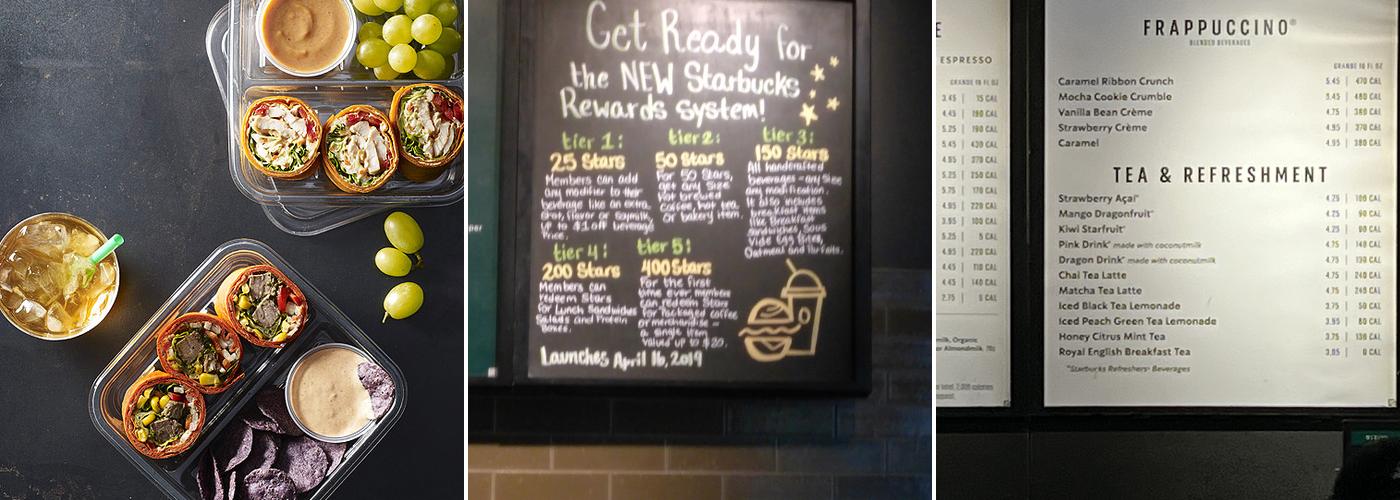 Get Ready for
the NEW Starbucks
Rewards system!
tier 1:
25 Stars
Members can add
any modifier to their
beverage like an extra
shot, flavor or soymilk,
up to $1 off beverage
Price.
tier 2:
50 Stars
For 50 Stars,
get any Size
hot brewed
coffee, hot tea
or bakery item.
tier 3:
150 Stars
All handcrafted
beverages - any Size
any modification.
It also includes
breakfast items
like Breakfast
sandwiches, Sous
Vide Egg Bites,
Oatmeal and Parfaits.
tier 4:
200 Stars
Members can
redeem Stars
for Lunch Sandwiches
Salads and Protein
Boxes.
tier 5:
400 Stars
For the first
time ever, members
can redeem Stars
for Packaged coffee
or merchandise -
a single item
valued up to $20.
Launches April 16, 2019
E
ESPRESSO
GRANDE 16 FL OZ
3.45 | 15 CAL
4.45 | 190 CAL
5.25 | 190 CAL
5.45 | 430 CAL
4.95 | 370 CAL
5.25 | 250 CAL
5.75 | 170 CAL
4.95 | 220 CAL
3.95 | 100 CAL
5.25 | 5 CAL
4.95 | 270 CAL
4.45 | 110 CAL
4.45 | 140 CAL
2.75 | 5 CAL
milk, Organic
or Almondmilk, 70¢
FRAPPUCCINO®
BLENDED BEVERAGES
GRANDE 16 FL OZ
Caramel Ribbon Crunch 5.45 | 470 CAL
Mocha Cookie Crumble 5.45 | 480 CAL
Vanilla Bean Crème 4.75 | 380 CAL
Strawberry Crème 4.95 | 370 CAL
Caramel 4.95 | 380 CAL
TEA & REFRESHMENT
Strawberry Açaí* 4.25 | 100 CAL
Mango Dragonfruit* 4.25 | 90 CAL
Kiwi Starfruit* 4.25 | 90 CAL
Pink Drink* made with coconutmilk 4.75 | 140 CAL
Dragon Drink* made with coconutmilk 4.75 | 130 CAL
Chai Tea Latte 4.75 | 240 CAL
Matcha Tea Latte 4.75 | 240 CAL
Iced Black Tea Lemonade 3.75 | 50 CAL
Iced Peach Green Tea Lemonade 3.95 | 80 CAL
Honey Citrus Mint Tea 3.75 | 130 CAL
Royal English Breakfast Tea 3.05 | 0 CAL
*Starbucks Refreshers® Beverages